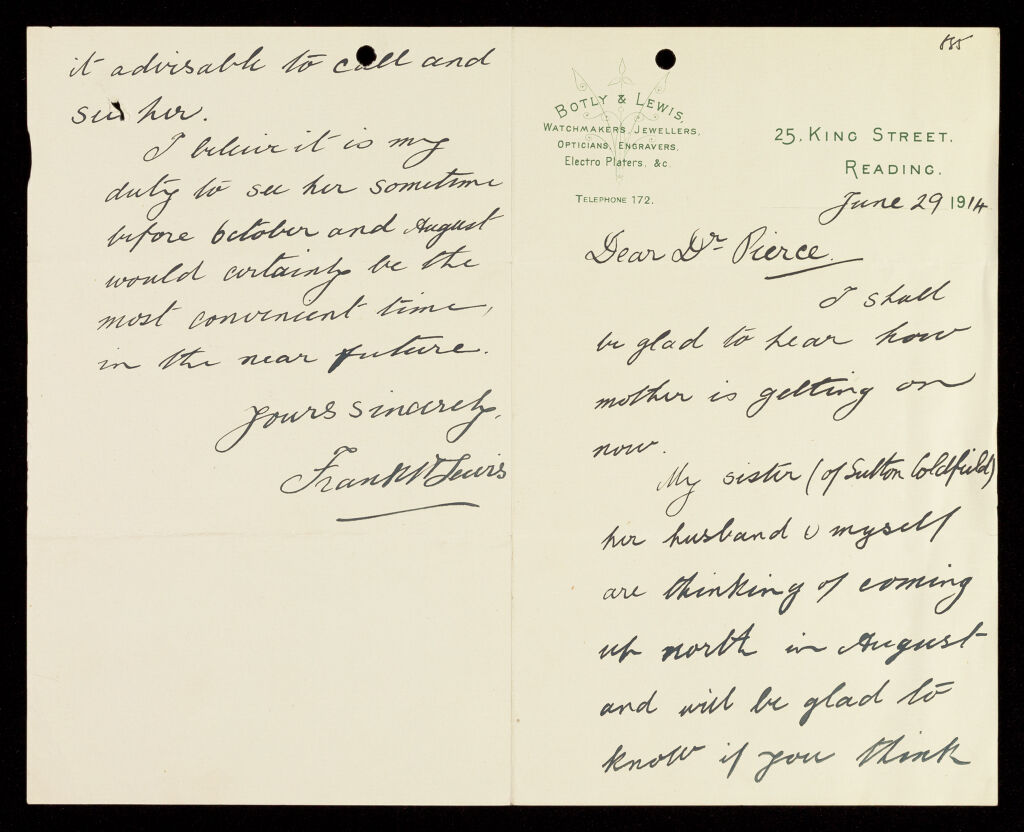 885
BOTLY & LEWIS,
WATCHMAKERS, JEWELLERS,
OPTICIANS, ENGRAVERS,
Electro Platers, &c.
TELEPHONE 172.
25, KING STREET.
READING.
June 29 1914
Dear Dr Pierce.
I shall
be glad to hear how
mother is getting on
now.
My sister (of Sutton Coldfield)
her husband & myself
are thinking of coming
up north in August
and will be glad to
know if you think
it advisable to call and
see her.
I believe it is my
duty to see her sometime
before October and August
would certainly be the
most convenient time,
in the near future.
Yours sincerely,
Frank W Lewis